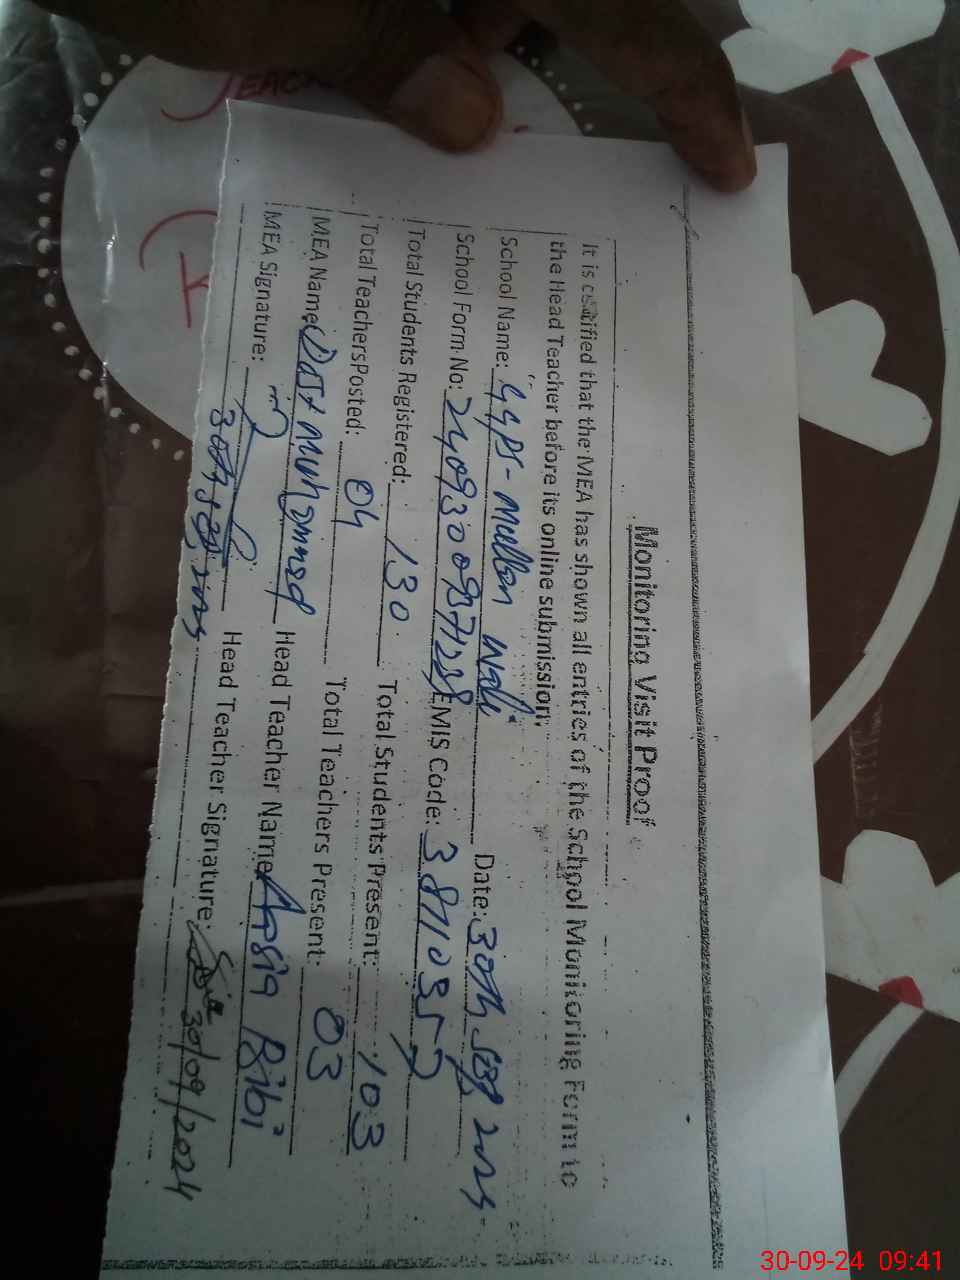 Monitoring Visit Proof
It is certified that the MEA has shown all entries of the School Monitoring Form to
the Head Teacher before its online submission.
School Name: GGPS - Mullan Wali Date: 30th Sep 2024
School Form No: EMIS Code: 38110357
Total Students Registered: 130 Total Students Present: 103
Total Teachers Posted: 04 Total Teachers Present: 03
MEA Name: Dost Muhammad Head Teacher Name: Aasia Bibi
MEA Signature: Head Teacher Signature:
30th Sep, 2024 30/09/2024
TEACH
30-09-24 09:41